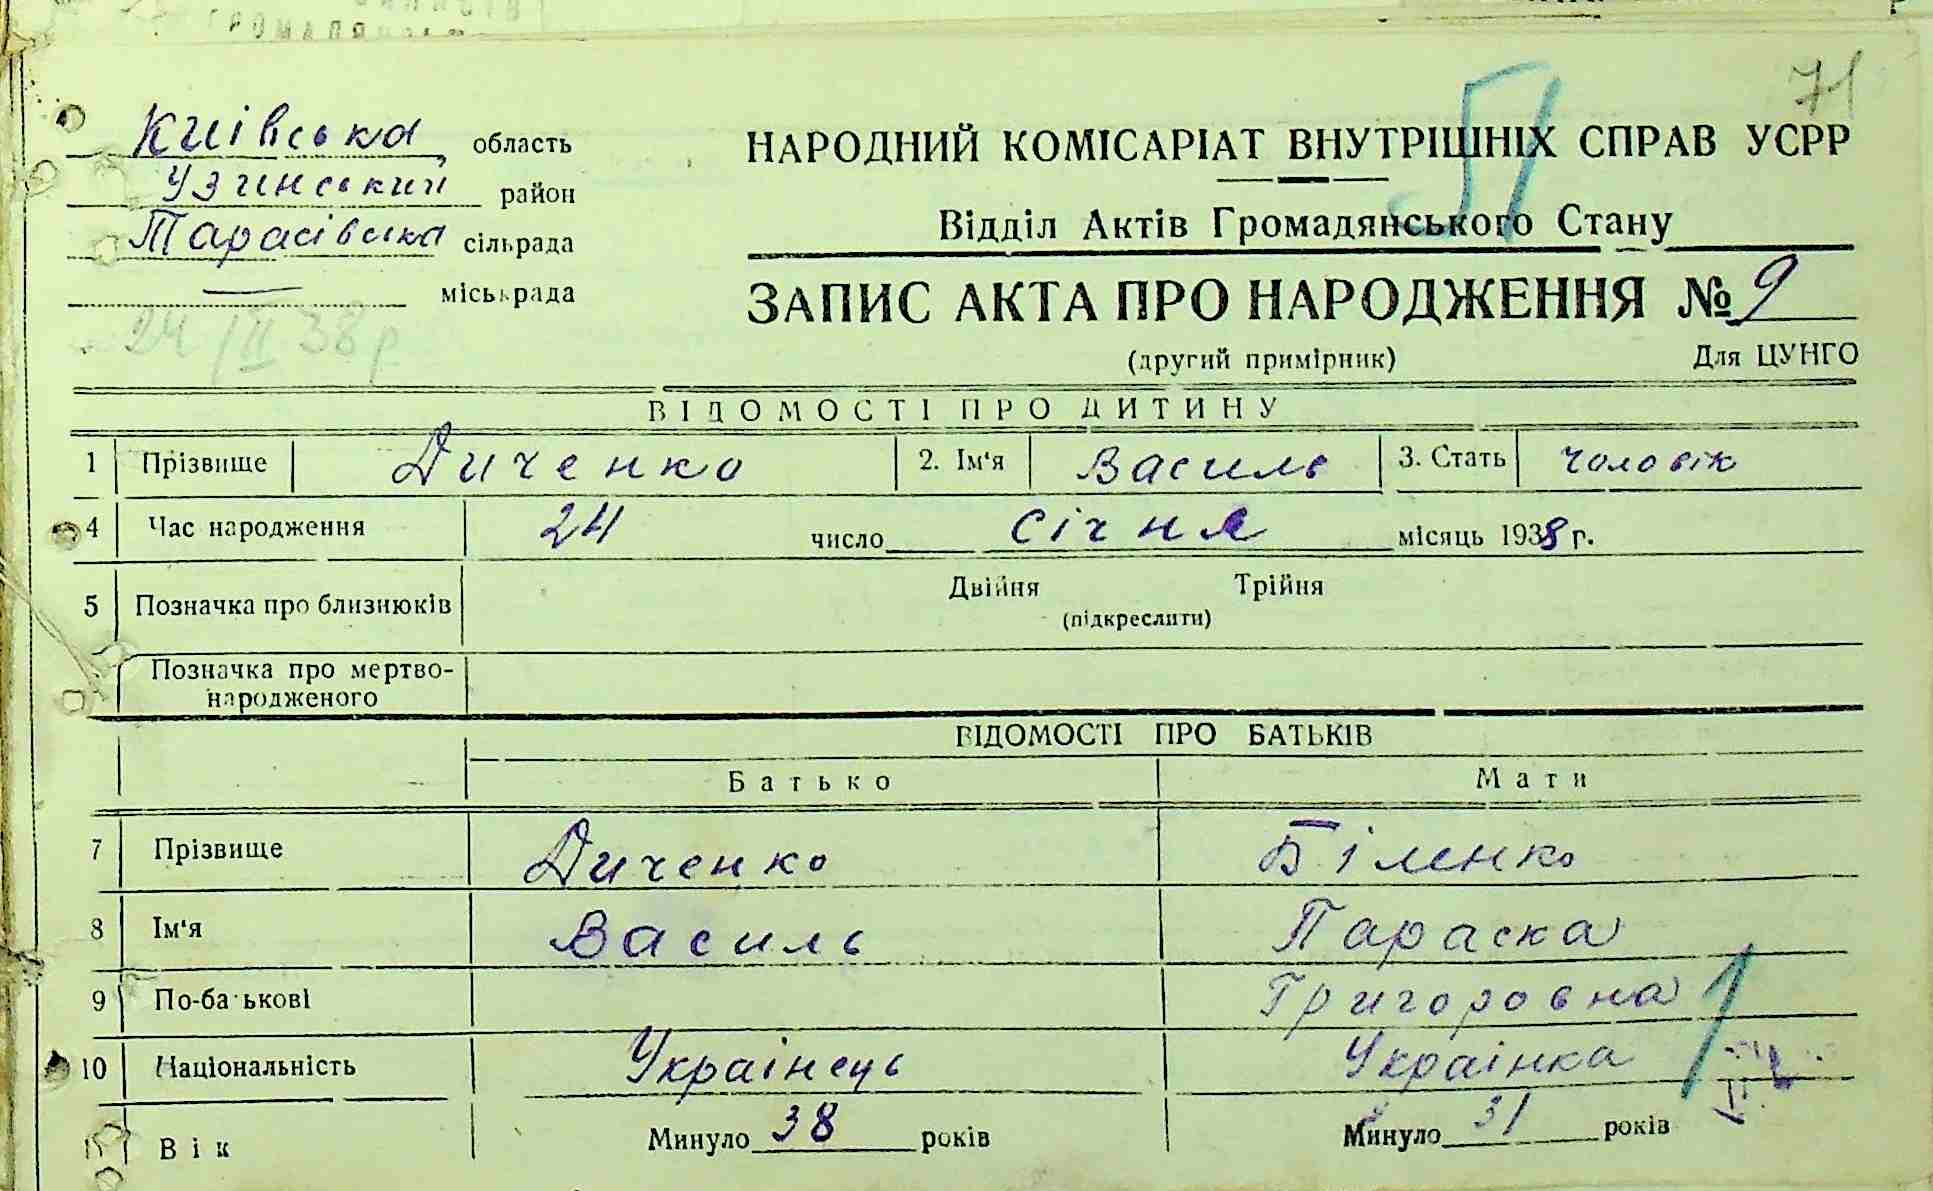 71
51
Київська область
Узинський район
Тарасівська сільрада
— міськрада
24/II 38 р
НАРОДНИЙ КОМІСАРІАТ ВНУТРІШНІХ СПРАВ УСРР
Відділ Актів Громадянського Стану
ЗАПИС АКТА ПРО НАРОДЖЕННЯ № 9
(другий примірник) Для ЦУНГО
ВІДОМОСТІ ПРО ДИТИНУ
1 Прізвище Диченко 2. Ім'я Василь 3. Стать чоловік
4 Час народження 24 число січня місяць 1938 р.
5 Позначка про близнюків Двійня Трійня
(підкреслити)
Позначка про мертво-
народженого
ВІДОМОСТІ ПРО БАТЬКІВ
Батько Мати
7 Прізвище Диченко Біленко
8 Ім'я Василь Параска
9 По-батькові Григоровна
10 Національність Українець Українка
11 Вік Минуло 38 років Минуло 31 років